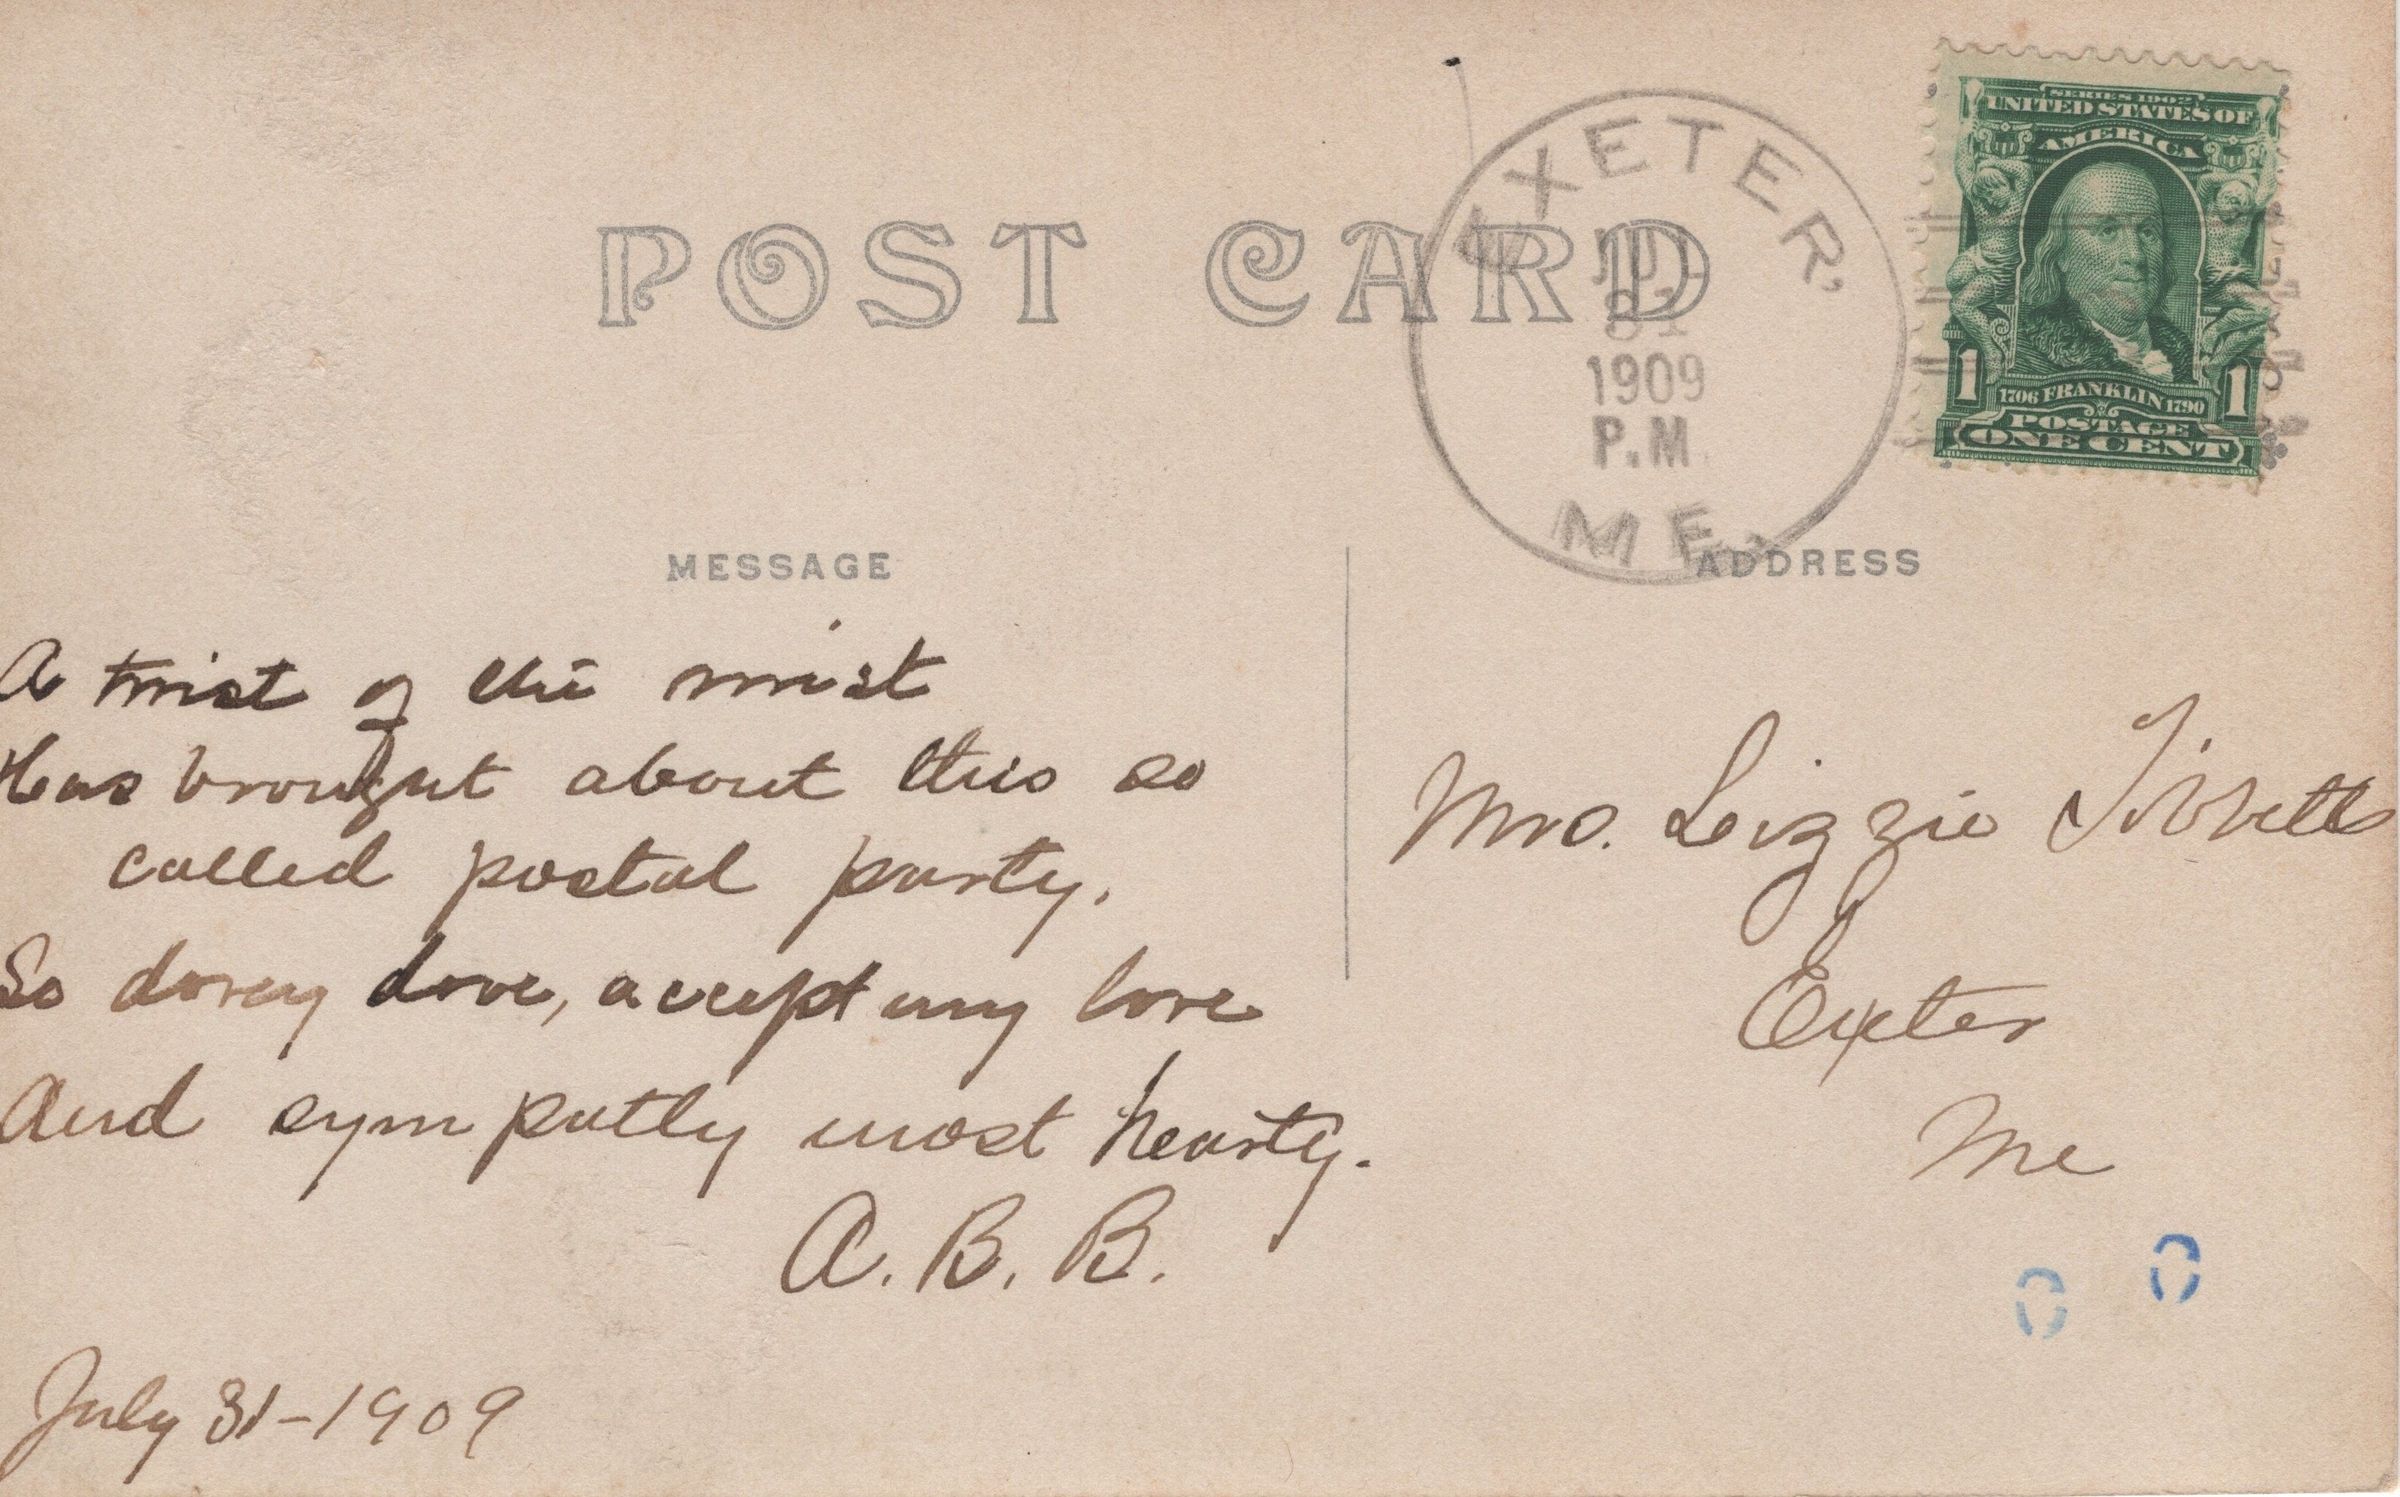 POST CARD
EXETER.
JUL
31
1909
P.M.
ME.
SERIES 1902
UNITED STATES OF
AMERICA
1 1706 FRANKLIN 1790 1
POSTAGE
ONE CENT
MESSAGE
A twist of the wrist
Has brought about this so
called postal party.
So dovey dove, accept my love
And sympathy most hearty.
A. B. B.
July 31-1909
ADDRESS
Mrs. Lizzie Tibbetts
Exeter
Me